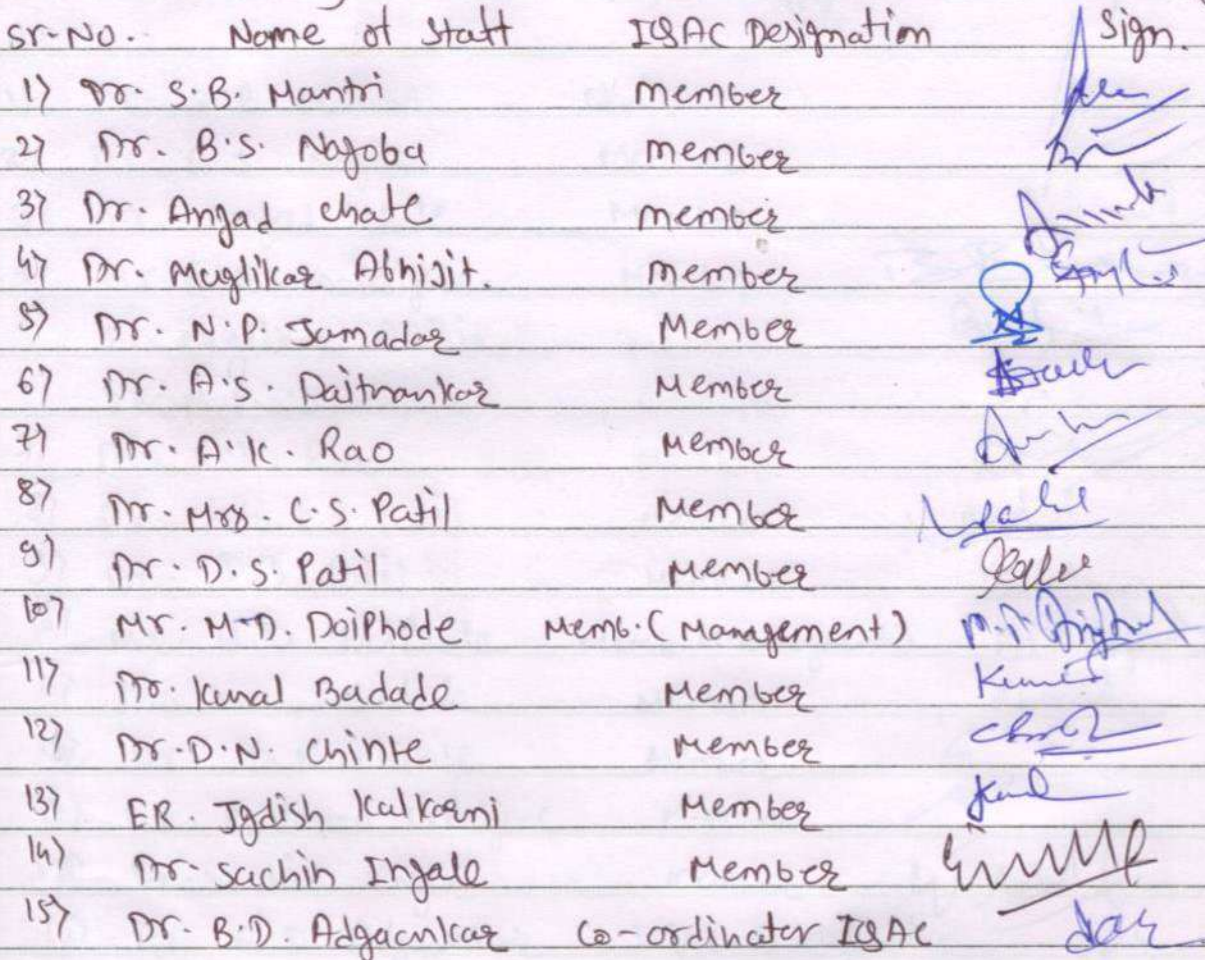 Sr-No. Name of Staff IQAC Designation Sign.
1) Dr. S.B. Mantri Member
2) Dr. B.S. Nagoba Member
3) Dr. Angad chate Member
4) Dr. Muglikar Abhijit. Member
5) Dr. N.P. Jamadar Member
6) Dr. A.S. Daithankar Member
7) Dr. A.K. Rao Member
8) Dr. Mrs. C.S. Patil Member
9) Dr. D.S. Patil Member
10) Mr. M.D. Doiphode Memb. (Management)
11) Dr. Kunal Badade Member
12) Dr. D.N. Chinte Member
13) ER. Jgdish Kulkarni Member
14) Dr. Sachin Ingale Member
15) Dr. B.D. Adgaonkar Co-ordinator IQAC